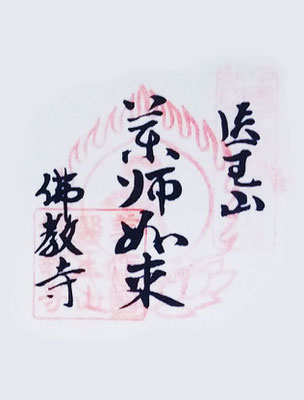 医王山
薬师如来
佛教寺